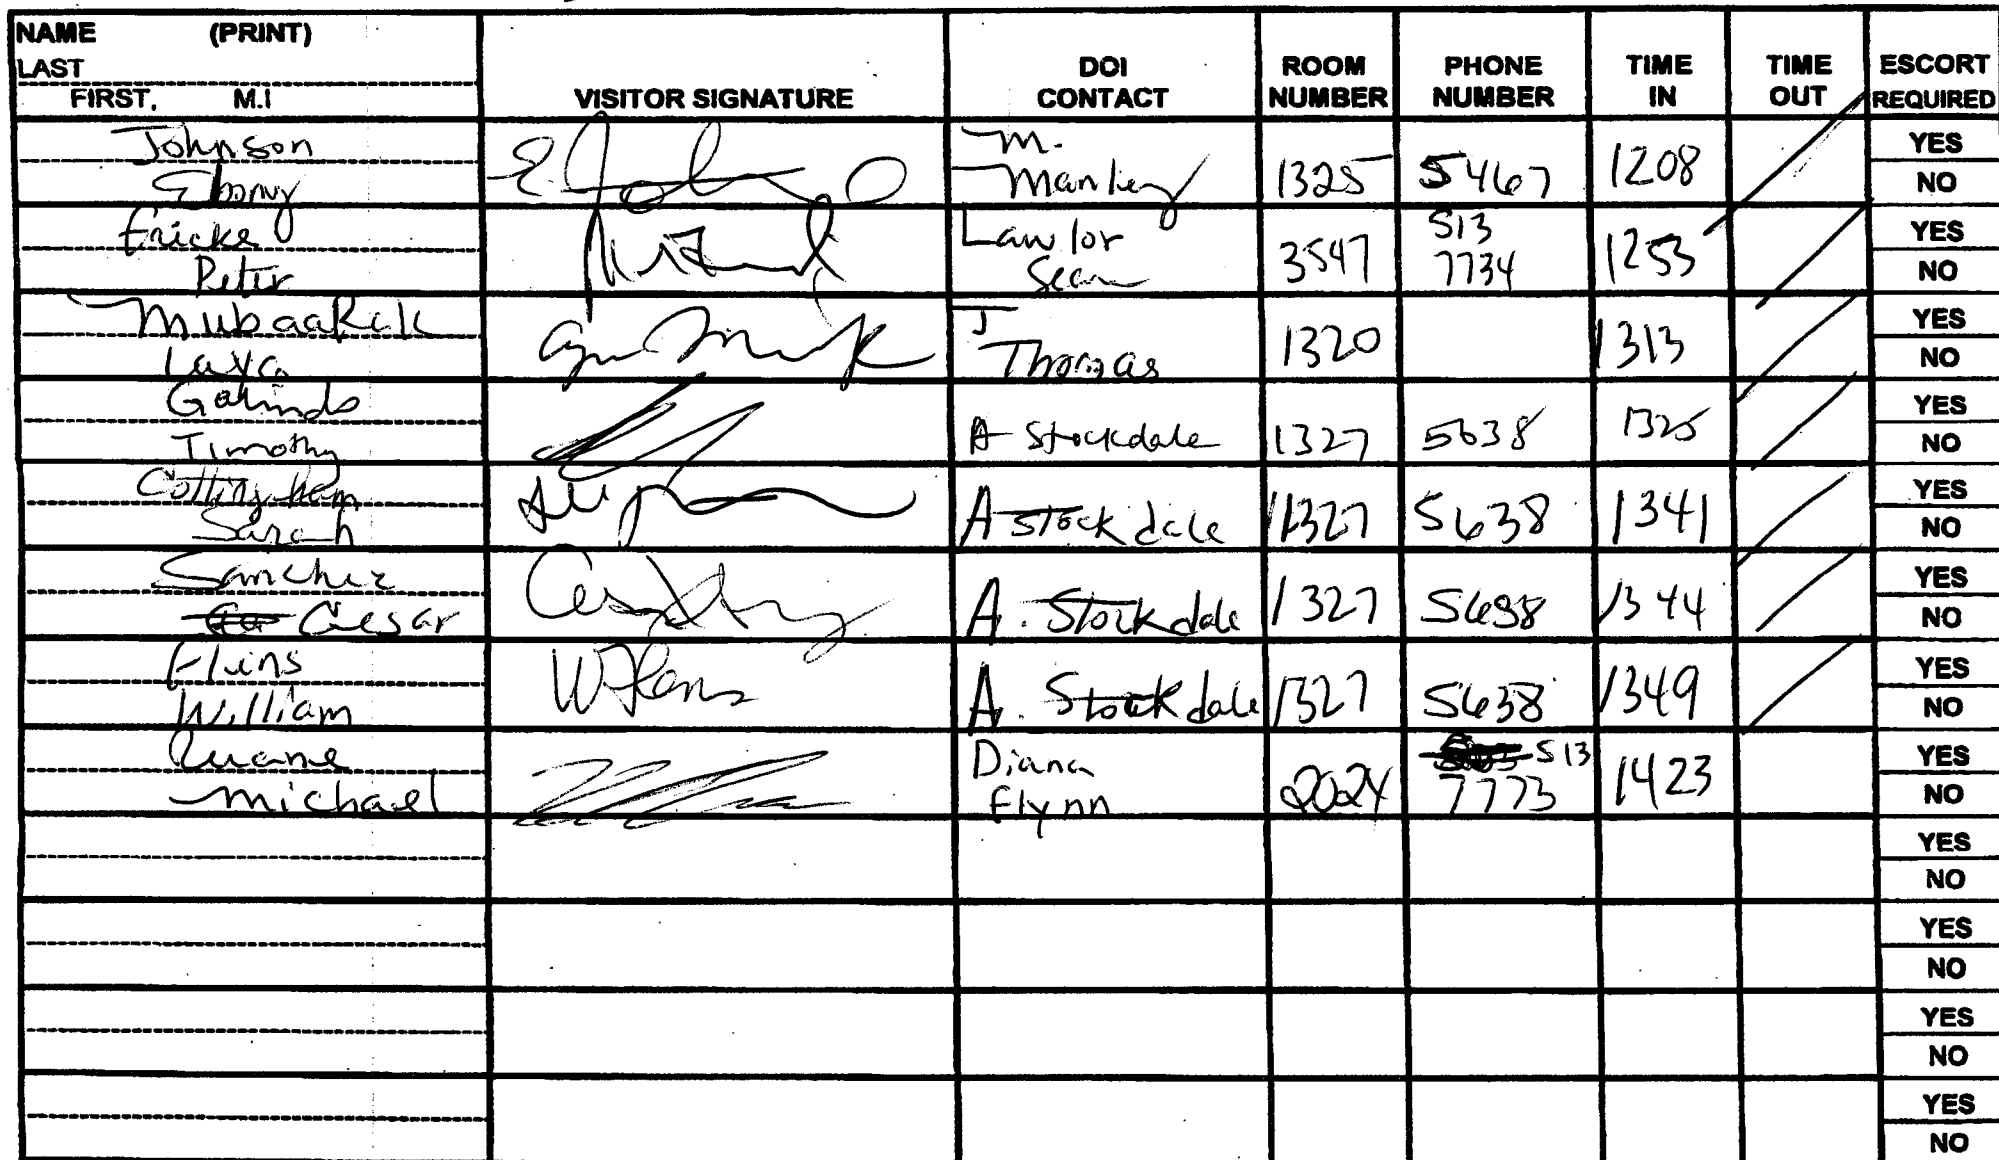 NAME (PRINT)
LAST
FIRST, M.I
VISITOR SIGNATURE
DOI CONTACT
ROOM NUMBER
PHONE NUMBER
TIME IN
TIME OUT
ESCORT REQUIRED
Johnson
Ebony
E Johnson
M. Manley
1325
5467
1208
YES
NO
Fricke
Peter
Lawlor Sean
3547
513 7734
1253
YES
NO
Mubaarak
J Thomas
1320
1313
YES
NO
Galindo
Timothy
A Stockdale
1327
5638
1325
YES
NO
Cottingham
Sarah
A Stockdale
1327
5638
1341
YES
NO
Sanchez
Caesar
A. Stockdale
1327
5638
1344
YES
NO
William
A. Stockdale
1327
5638
1349
YES
NO
Ruane
Michael
Diana Flynn
2024
513 7773
1423
YES
NO
YES
NO
YES
NO
YES
NO
YES
NO